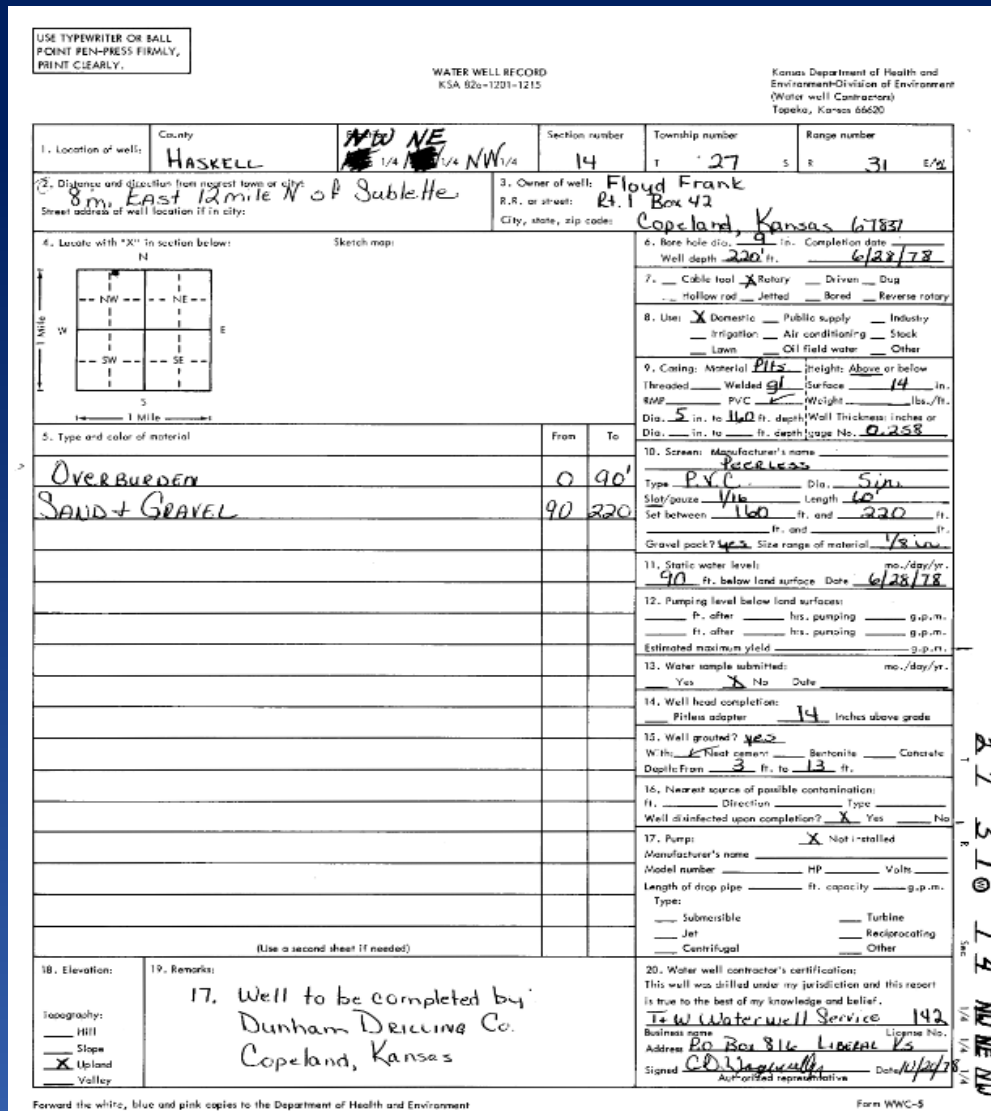 USE TYPEWRITER OR BALL
POINT PEN-PRESS FIRMLY,
PRINT CLEARLY.
WATER WELL RECORD
KSA 82a-1201-1215
Kansas Department of Health and
Environment-Division of Environment
(Water well Contractors)
Topeka, Kansas 66620
1. Location of well:
County
HASKELL
NW NE
1/4 1/4 NW 1/4
Section number
14
Township number
T 27 S
Range number
R 31 E/W
2. Distance and direction from nearest town or city:
8m. EAST 12mile N of Sublette
Street address of well location if in city:
3. Owner of well: Floyd Frank
R.R. or street: Rt. 1 Box 42
City, state, zip code: Copeland, Kansas 67837
4. Locate with "X" in section below:
Sketch map:
N
NW NE
1 Mile W E
SW SE
S
1 Mile
6. Bore hole dia. 9 in. Completion date
Well depth 220' ft. 6/28/78
7. Cable tool X Rotary Driven Dug
Hollow rod Jetted Bored Reverse rotary
8. Use: X Domestic Public supply Industry
Irrigation Air conditioning Stock
Lawn Oil field water Other
9. Casing: Material Height: Above or below
Threaded Welded gl Surface 14 in.
RMP PVC ✓ Weight lbs./ft.
Dia. 5 in. to 160 ft. depth Wall Thickness: inches or
Dia. in. to ft. depth gage No. 0.258
5. Type and color of material From To
OVERBURDEN 0 90'
SAND + GRAVEL 90 220
10. Screen: Manufacturer's name
PEERLESS
Type P.V.C. Dia. 5in.
Slot/gauze 1/16 Length 60'
Set between 160 ft. and 220 ft.
ft. and ft.
Gravel pack? yes Size range of material 1/8 in
11. Static water level: mo./day/yr.
90 ft. below land surface Date 6/28/78
12. Pumping level below land surfaces:
ft. after hrs. pumping g.p.m.
ft. after hrs. pumping g.p.m.
Estimated maximum yield g.p.m.
13. Water sample submitted: mo./day/yr.
Yes X No Date
14. Well head completion:
Pitless adapter 14 Inches above grade
15. Well grouted? yes
With: ✓ Neat cement Bentonite Concrete
Depth: From 3 ft. to 13 ft.
16. Nearest source of possible contamination:
ft. Direction Type
Well disinfected upon completion? X Yes No
17. Pump: X Not installed
Manufacturer's name
Model number HP Volts
Length of drop pipe ft. capacity g.p.m.
Type:
Submersible Turbine
Jet Reciprocating
Centrifugal Other
(Use a second sheet if needed)
18. Elevation:
Topography:
Hill
Slope
X Upland
Valley
19. Remarks:
17. Well to be completed by
Dunham DRILLING Co.
Copeland, Kansas
20. Water well contractor's certification:
This well was drilled under my jurisdiction and this report
is true to the best of my knowledge and belief.
T+W Waterwell Service 142
Business name License No.
Address P.O Box 816 LIBERAL Ks
Signed Date
Authorized representative
T 27 R 31 W Sec 14 NW NE NW
1/4 1/4 1/4
Forward the white, blue and pink copies to the Department of Health and Environment
Form WWC-5